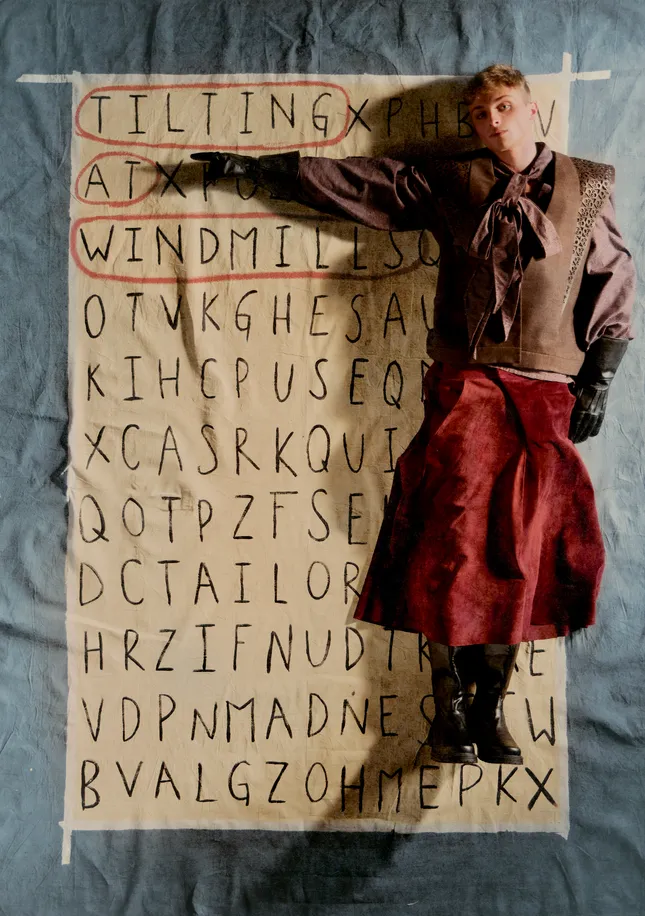 TILTINGXPHB V
ATX
WINDMILLSQ
OTVKGHESA
KIHCPUSEQ
XCASRKQUI
QOTPZFSE
DCTAILOR
HRZIFNUD E
VDPNMADNES W
BVALGZOHMEPKX